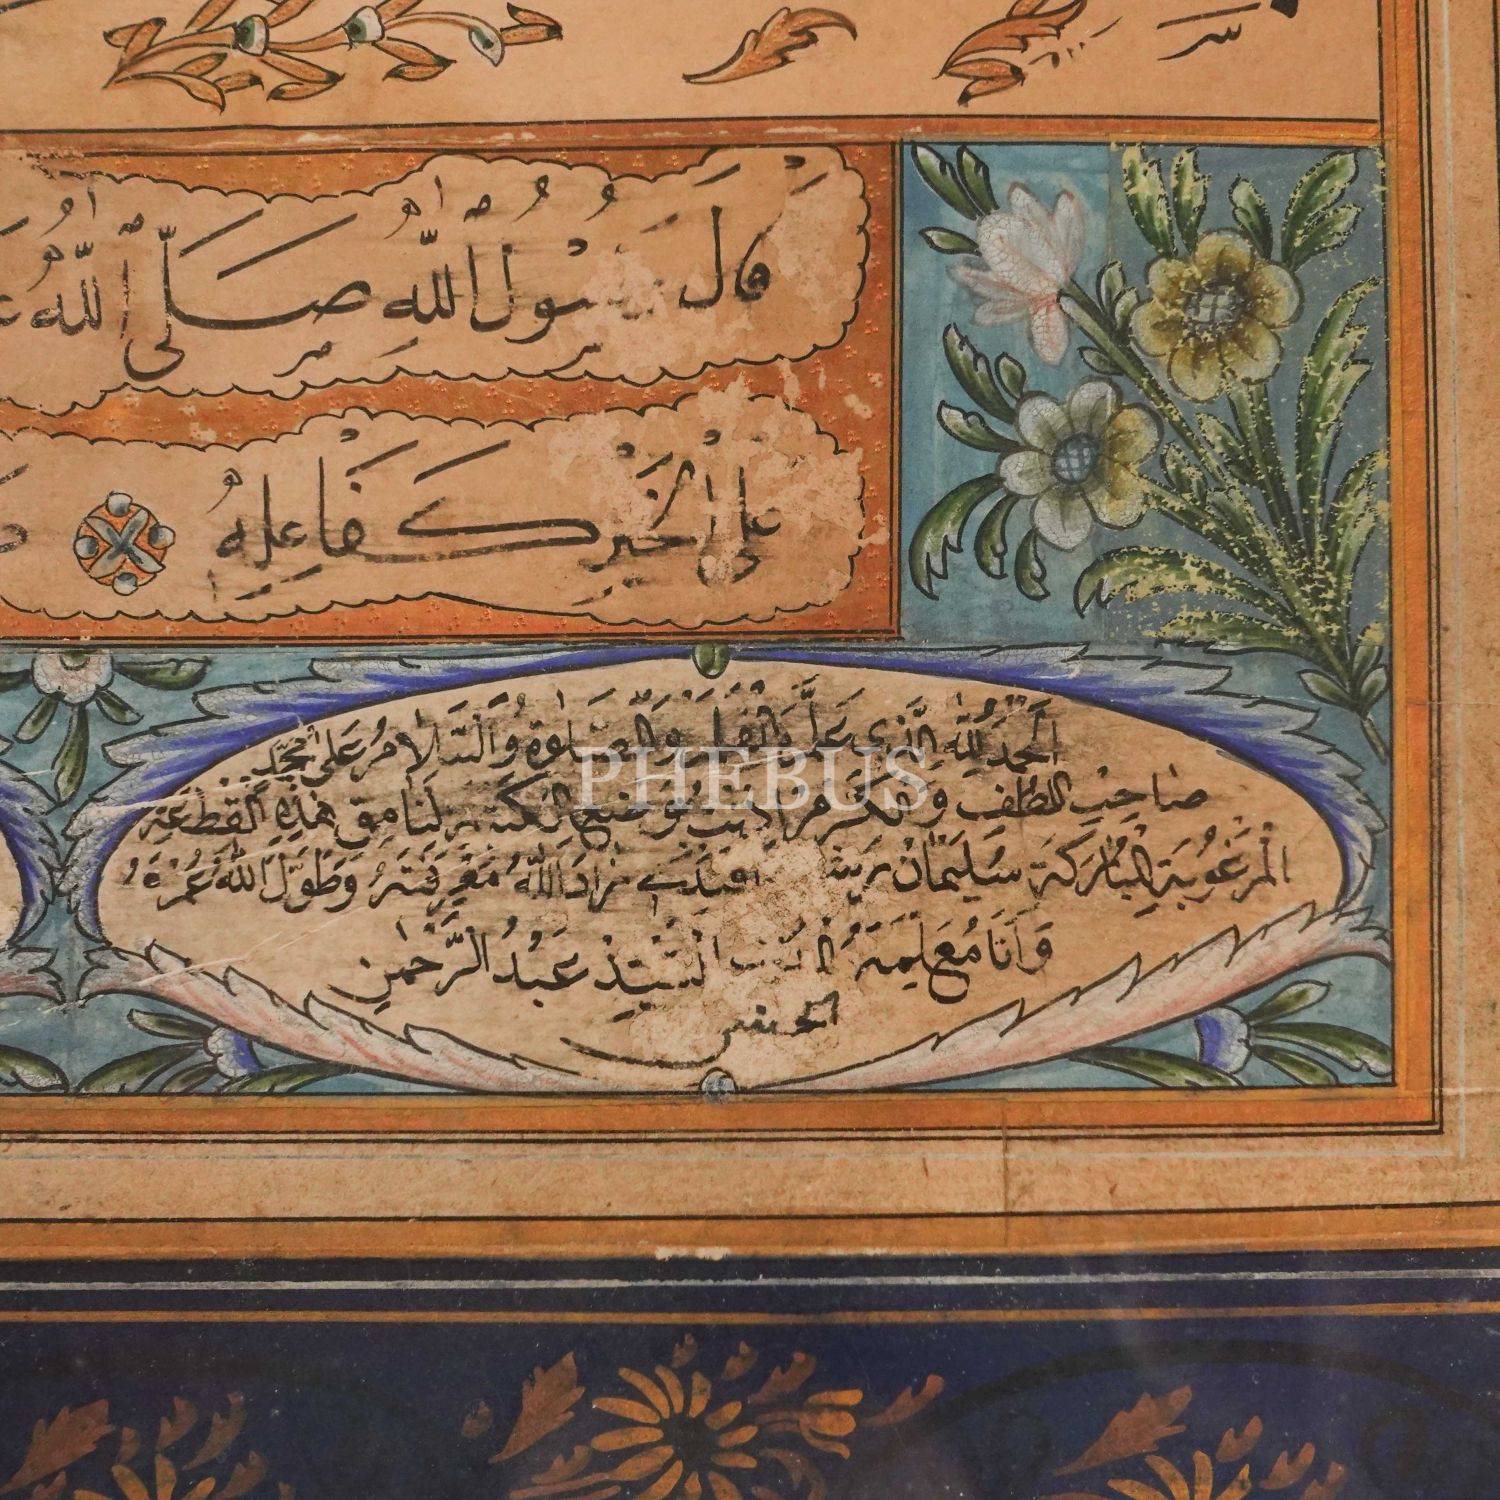 قَالَ رَسُولُ اللّٰهِ صَلَّى اللّٰهُ
عَلَى الْخَيْرِ كَفَاعِلِهِ
اَلْحَمْدُ لِلّٰهِ الَّذِي عَلَّمَ بِالْقَلَمِ وَالصَّلَاةُ وَالسَّلَامُ عَلَى مُحَمَّدٍ
صَاحِبِ اللُّطْفِ وَالْكَرَمِ بِوَضْعِ الْكَتَبَةِ لِنَامِقِ هٰذِهِ الْقِطْعَةِ
الْمَرْغُوبَةِ الْمُبَارَكَةِ سُلَيْمَانْ اَفَنْدِي زَادَ اللّٰهُ مَعْرِفَتَهُ وَطَوَّلَ اللّٰهُ عُمْرَهُ
وَاَنَا مُعَلِّمُهُ السَّيِّدْ عَبْدُ الرَّحْمٰنِ
الحلمي
PHEBUS